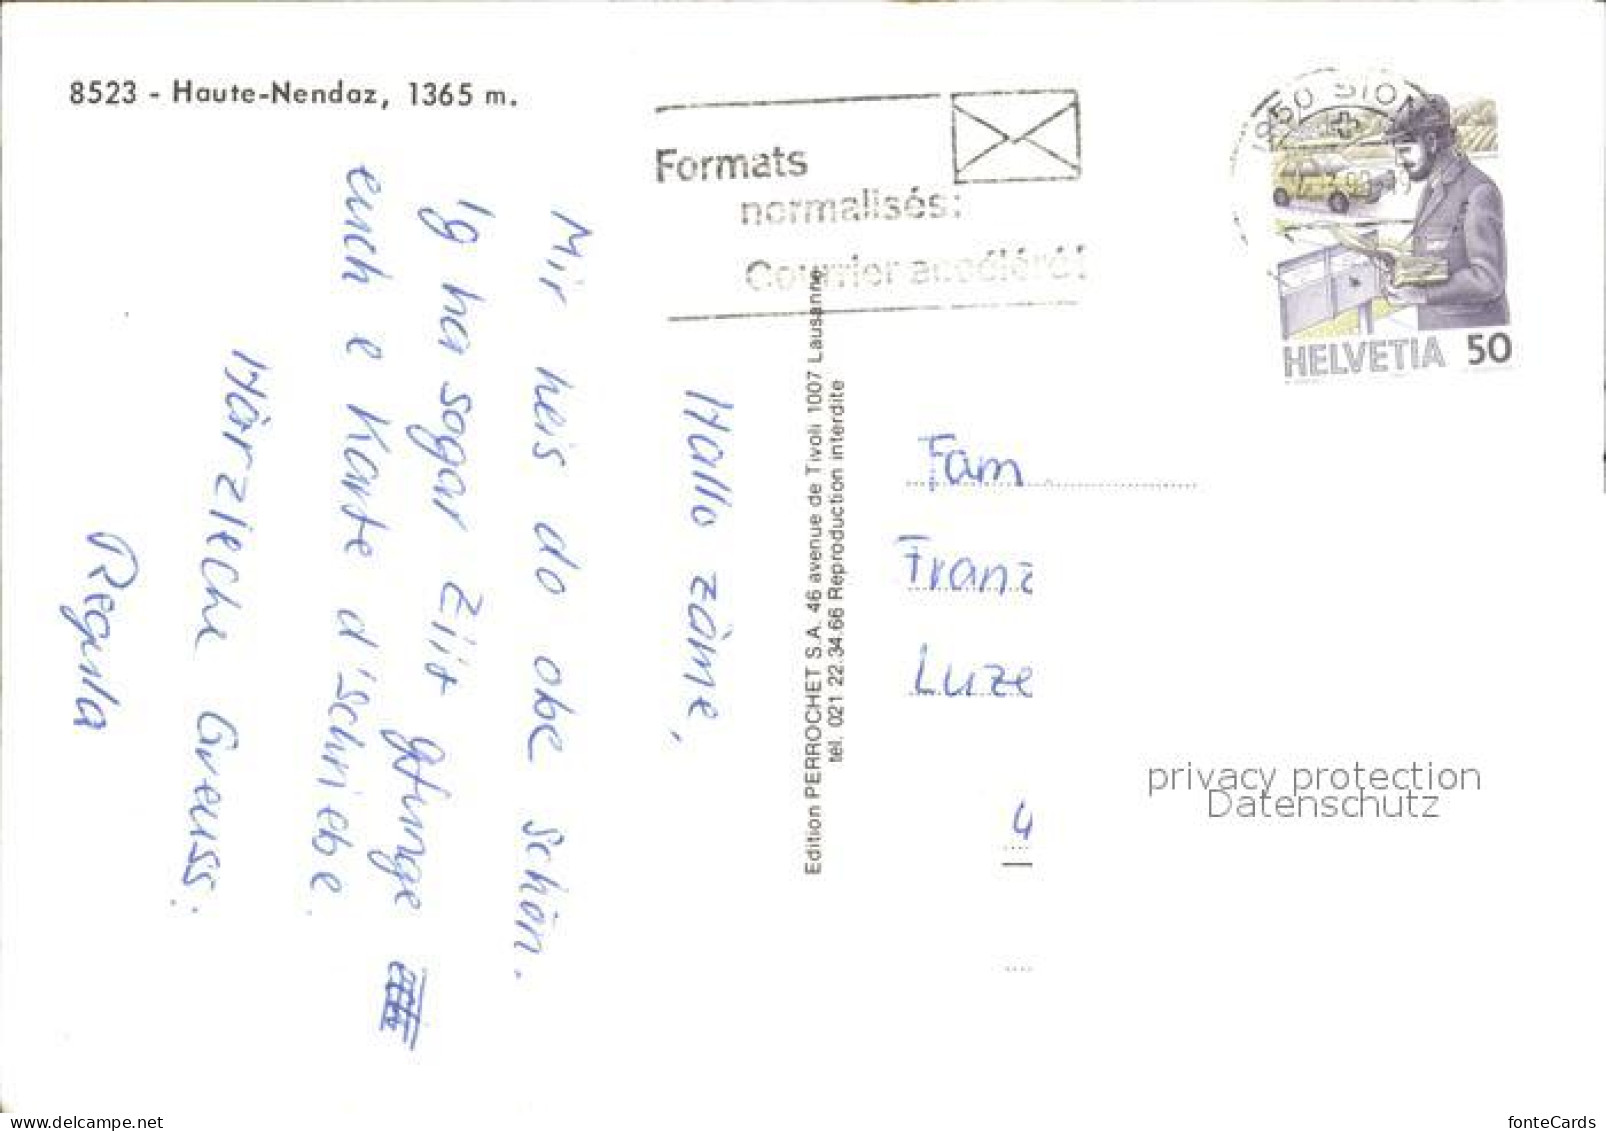 8523 - Haute-Nendaz, 1365 m.
Formats
normalisés:
Courrier accéléré!
1950 SION
HELVETIA 50
Hallo zäme,
Mir heis do obe schön.
Ig ha sogar Ziit gfunge
euch e Karte d'schriebe.
Härzlechi Gruess:
Regula
Edition PERROCHET S.A. 46 avenue de Tivoli 1007 Lausanne
tél. 021 22.34.66 Reproduction interdite
Fam.
Franz
Luze
4
privacy protection
Datenschutz
delcampe.net
fonteCards